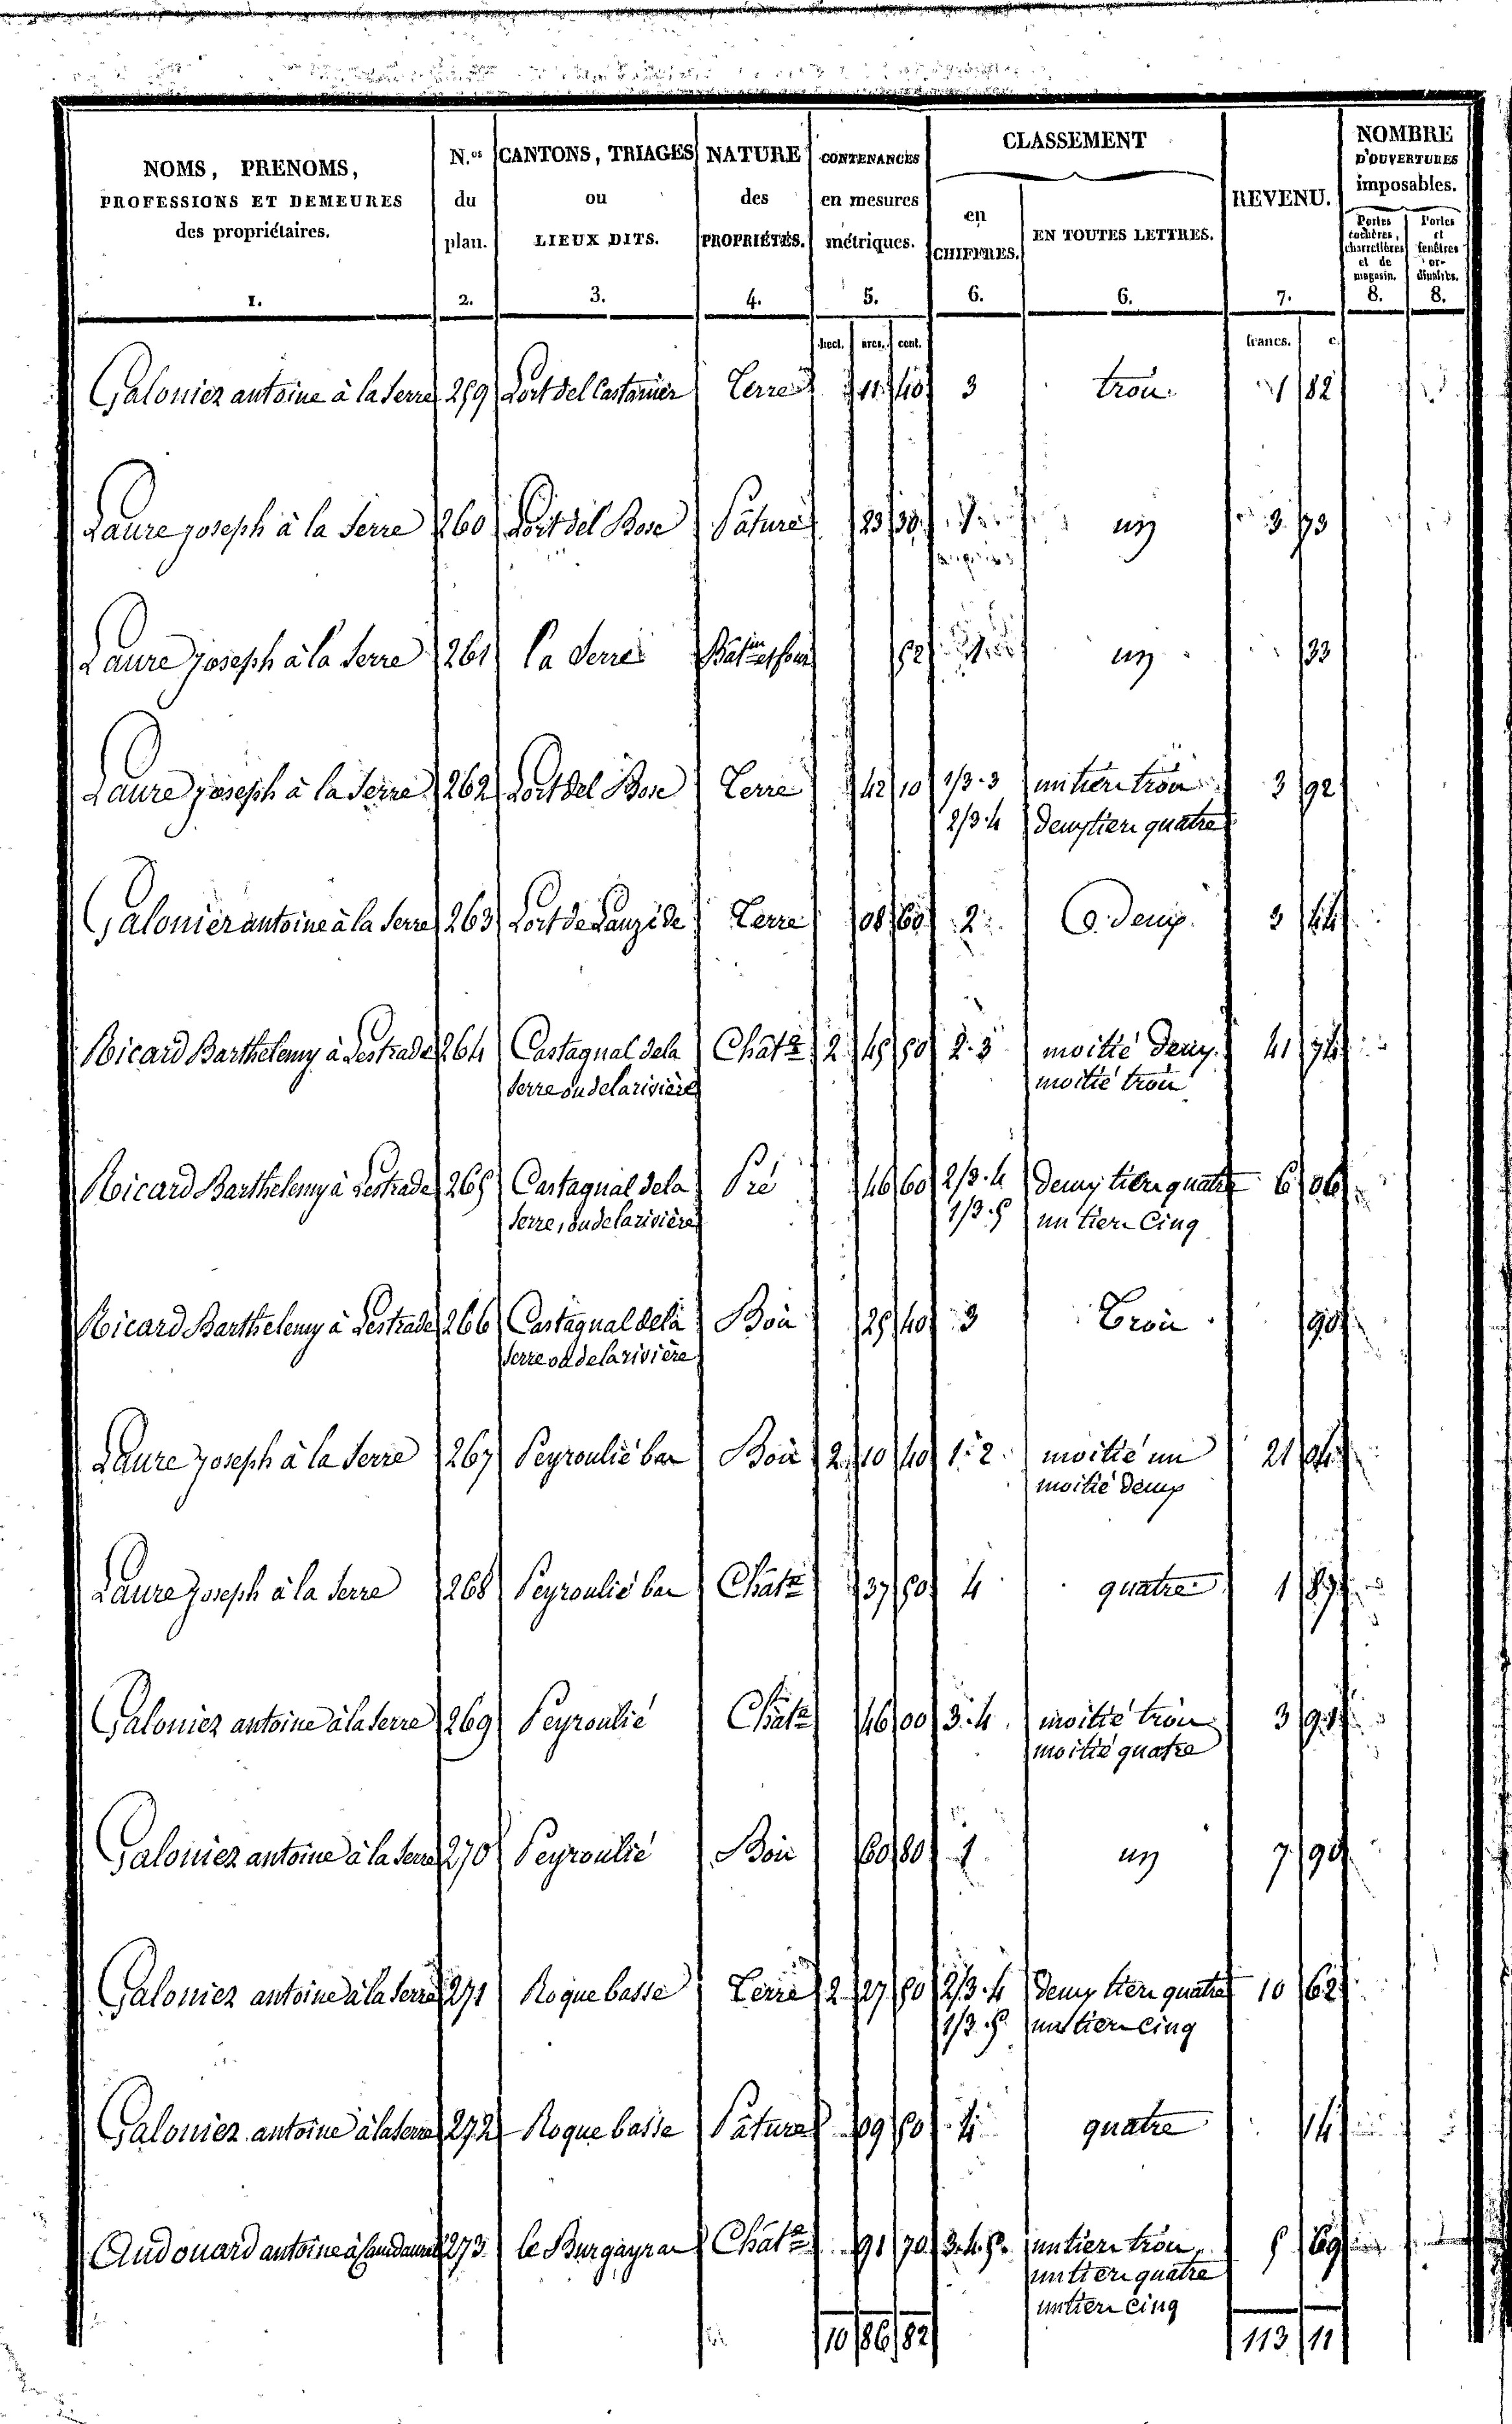 NOMS, PRENOMS, PROFESSIONS ET DEMEURES des propriétaires. 1.
N.os du plan. 2.
CANTONS, TRIAGES ou LIEUX DITS. 3.
NATURE des PROPRIÉTÉS. 4.
CONTENANCES en mesures métriques. 5.
CLASSEMENT
en CHIFFRES. 6.
EN TOUTES LETTRES. 6.
REVENU. 7.
NOMBRE D'OUVERTURES imposables.
Portes cochères, charretières et de magasin. 8.
Portes et fenêtres ordinaires. 8.
hect. ares. cent. francs. c.
Galonier antoine à la Serre 259 Lort del Castanier Terre 11 40 3 trois 1 82
Laure joseph à la Serre 260 Lort del Bosc Pature 23 30 1 un 3 73
Laure joseph à la Serre 261 la Serre 52 1 un 33
Laure joseph à la Serre 262 Lort del Bosc Terre 42 10 1/3.3 un tiers trois 3 92
2/3.4 deux tiers quatre
Galonier antoine à la Serre 263 Lort de Lauzide Terre 08 60 2 deux 3 44
Ricard Barthelemy à Lestrade 264 Castagnal de la Chât.re 2 45 50 2.3 moitié deux 41 74
Serre ou de la rivière moitié trois
Ricard Barthelemy à Lestrade 265 Castagnal de la Pré 46 60 2/3.4 deux tiers quatre 6 06
Serre, ou de la rivière 1/3.5 un tiers Cinq
Ricard Barthelemy à Lestrade 266 Castagnal de la Bois 25 40 3 Trois 90
Serre ou de la rivière
Laure joseph à la Serre 267 Peyroulié bas Bois 2 10 40 1.2 moitié un 21 04
moitié deux
Laure joseph à la Serre 268 Peyroulié bas Chât.re 37 50 4 quatre 1 87
Galonier antoine à la Serre 269 Peyroulié Chât.re 46 00 3.4 moitié trois 3 91
moitié quatre
Galonier antoine à la Serre 270 Peyroulié Bois 60 80 1 un 7 90
Galonier antoine à la Serre 271 Roque basse Terre 2 27 50 2/3.4 deux tiers quatre 10 62
1/3.5 un tiers Cinq
Galonier antoine à la Serre 272 Roque basse Pature 09 50 4 quatre 14
Audouard antoine à 273 le Burgayras Chât.re 91 70 3.4.5. un tiers trois 5 69
un tiers quatre
un tiers Cinq
10 86 82 113 11